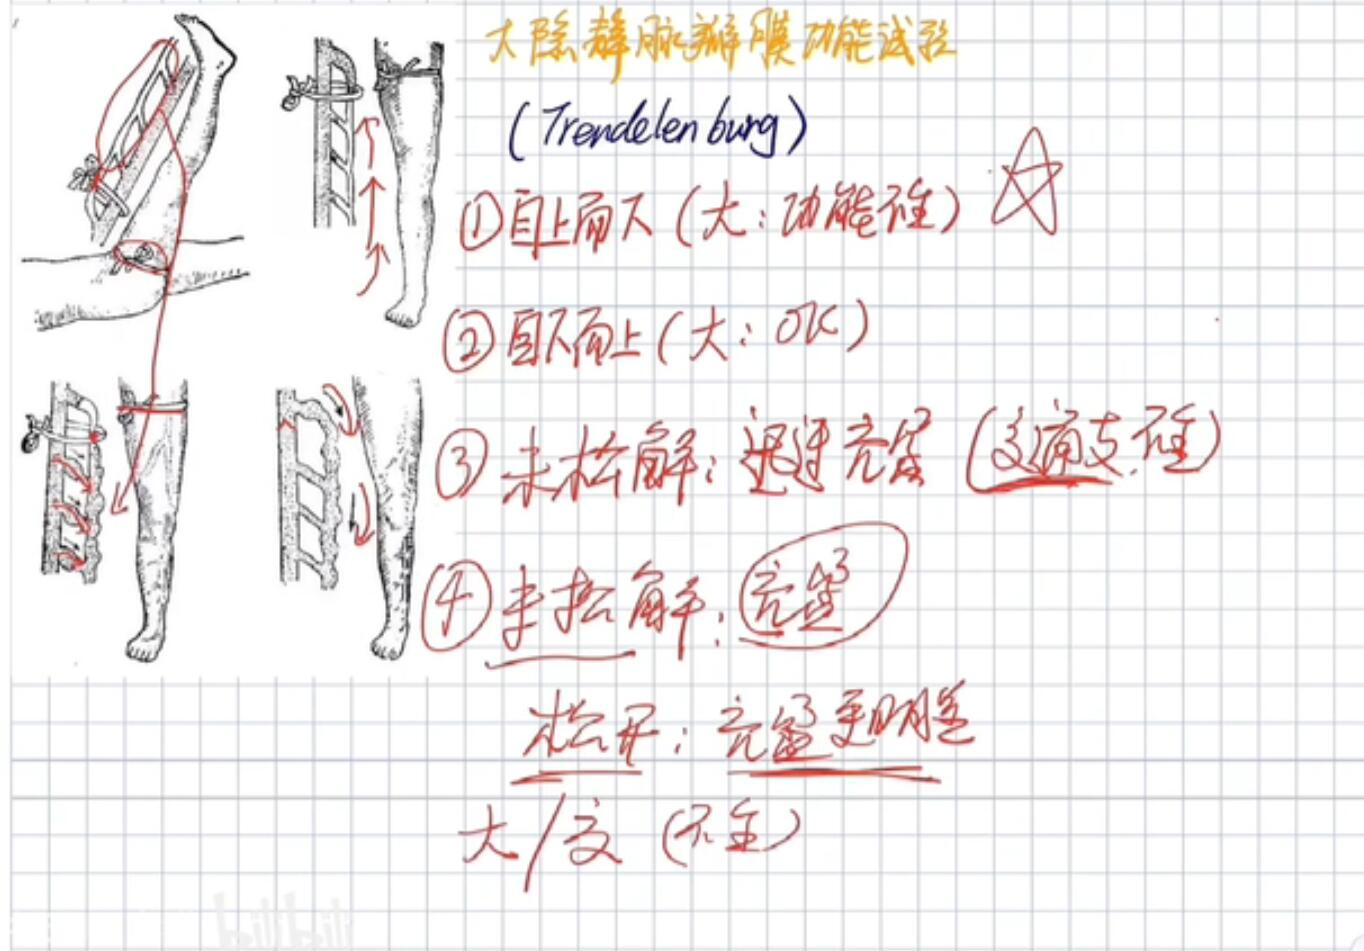 大隐静脉瓣膜功能试验
(Trendelenburg)
①自上而下(大:功能不全)
②自下而上(大:OK)
③未松解:迅速充盈(交通支不全)
④未松解:充盈
松开:充盈更明显
大/交(不全)
bilibili